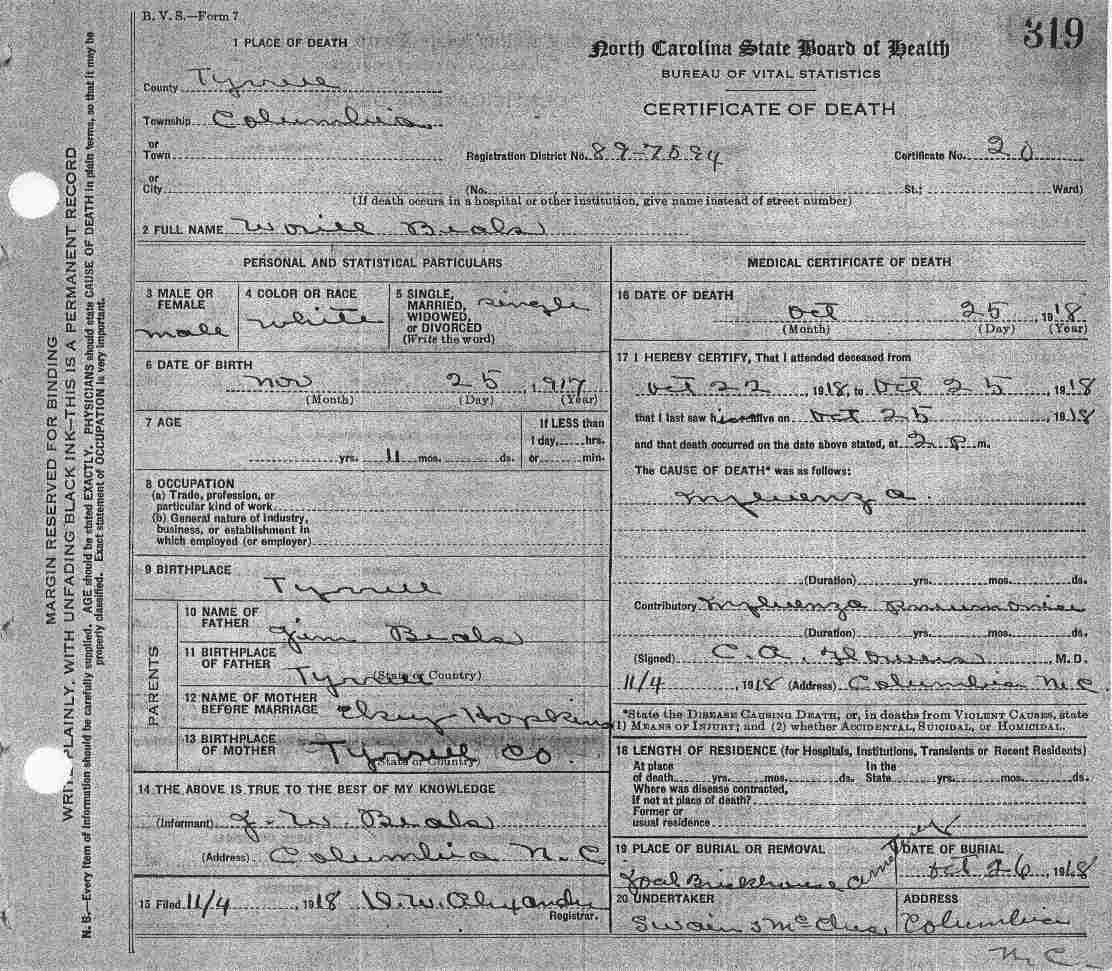 B. V. S.—Form 7
319
North Carolina State Board of Health
BUREAU OF VITAL STATISTICS
CERTIFICATE OF DEATH
1 PLACE OF DEATH
County Tyrrell
Township Columbia
or
Town
Registration District No. 89-7594 Certificate No. 20
or
City (No. St.; Ward)
(If death occurs in a hospital or other institution, give name instead of street number)
2 FULL NAME Beals
PERSONAL AND STATISTICAL PARTICULARS
3 MALE OR FEMALE male
4 COLOR OR RACE white
5 SINGLE, MARRIED, WIDOWED, or DIVORCED (Write the word) single
6 DATE OF BIRTH
Nov 25, 1917
(Month) (Day) (Year)
7 AGE
If LESS than
1 day, hrs.
yrs. 11 mos. ds. or min.
8 OCCUPATION
(a) Trade, profession, or
particular kind of work
(b) General nature of industry,
business, or establishment in
which employed (or employer)
9 BIRTHPLACE
Tyrrell
PARENTS
10 NAME OF FATHER Jim Beals
11 BIRTHPLACE OF FATHER Tyrrell
(State or Country)
12 NAME OF MOTHER BEFORE MARRIAGE Hopkins
13 BIRTHPLACE OF MOTHER Tyrrell Co.
(State or Country)
14 THE ABOVE IS TRUE TO THE BEST OF MY KNOWLEDGE
(Informant) J. W. Beals
(Address) Columbia N. C
15 Filed 11/4 1918
Registrar.
MEDICAL CERTIFICATE OF DEATH
16 DATE OF DEATH
Oct 25 1918
(Month) (Day) (Year)
17 I HEREBY CERTIFY, That I attended deceased from
Oct 22 1918, to Oct 25, 1918
that I last saw him alive on Oct 25, 1918
and that death occurred on the date above stated, at 2 P. m.
The CAUSE OF DEATH* was as follows:
Influenza.
(Duration) yrs. mos. ds.
Contributory Influenza Pneumonia
(Duration) yrs. mos. ds.
(Signed) C. A. Flowers, M. D.
11/4, 1918 (Address) Columbia N. C
*State the DISEASE CAUSING DEATH, or, in deaths from VIOLENT CAUSES, state
1) MEANS OF INJURY; and (2) whether ACCIDENTAL, SUICIDAL, or HOMICIDAL.
18 LENGTH OF RESIDENCE (for Hospitals, Institutions, Transients or Recent Residents)
At place In the
of death yrs. mos. ds. State yrs. mos. ds.
Where was disease contracted,
if not at place of death?
Former or
usual residence
19 PLACE OF BURIAL OR REMOVAL
Brickhouse
DATE OF BURIAL
Oct 26, 1918
20 UNDERTAKER
Swain & McClees
ADDRESS
Columbia
N. C.
MARGIN RESERVED FOR BINDING
WRITE PLAINLY, WITH UNFADING BLACK INK—THIS IS A PERMANENT RECORD
N. B.—Every item of information should be carefully supplied. AGE should be stated EXACTLY. PHYSICIANS should state CAUSE OF DEATH in plain terms, so that it may be
properly classified. Exact statement of OCCUPATION is very important.